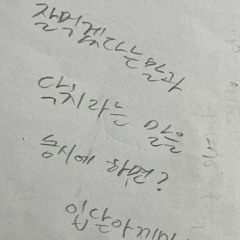 잘먹겠다는말과
닥치라는 말을
동시에 하면?
입닫아